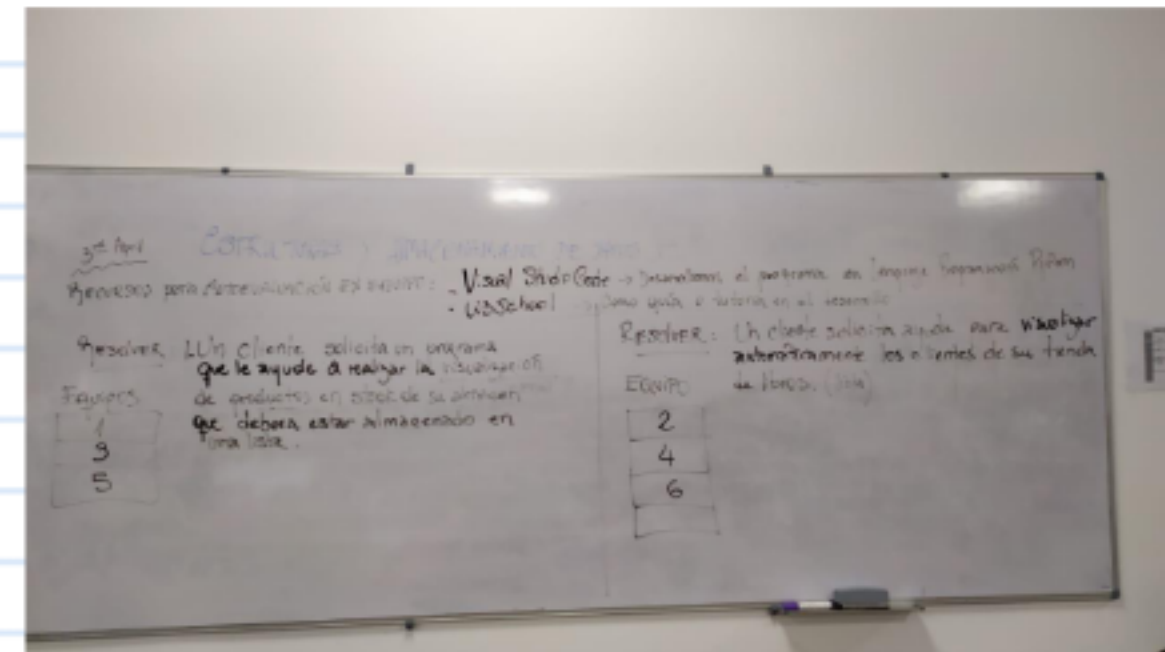 3rd April
ESTRUCTURAS Y ALMACENAMIENTO DE DATOS
RECURSOS PARA AUTOEVALUACIÓN EX : - Visual Studio Code → Desarrollamos el programa en lenguaje Programación Python
- W3School → Como guía o tutoría en el desarrollo
Resolver 1. Un cliente solicita un programa
que le ayude a realizar la visualización
de productos en stock de su almacen
que debera estar almacenado en
una lista.
Equipos
1
3
5
RESOLVER: Un cliente solicita ayuda para visualizar
automáticamente los clientes de su tienda
de libros. (lista)
EQUIPO
2
4
6